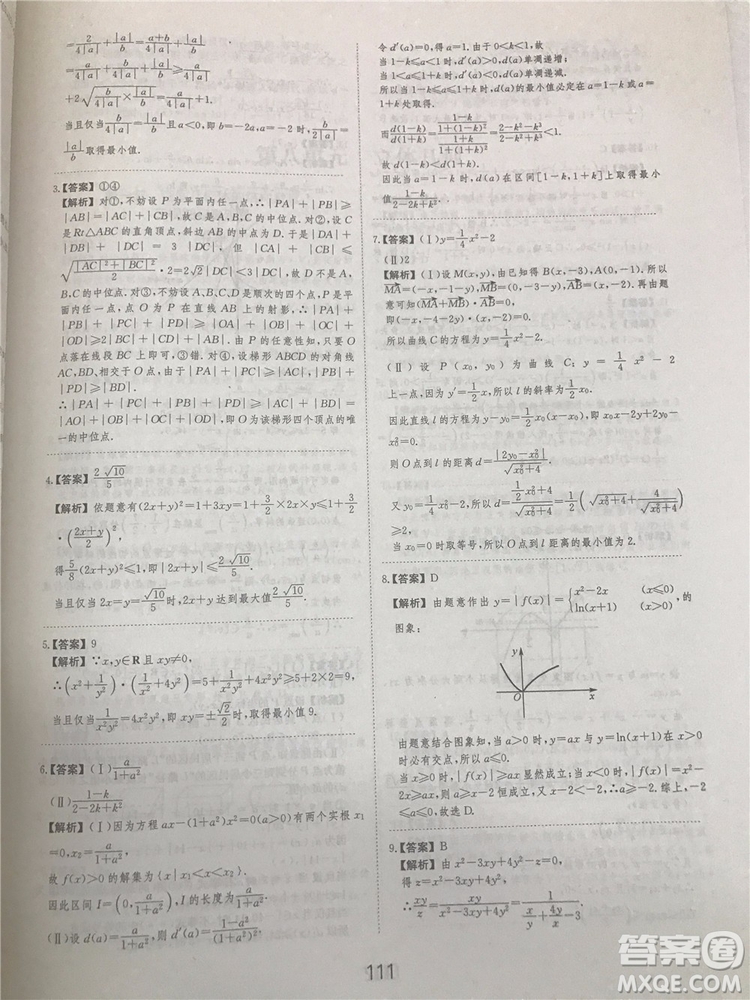 =2/(4|a|)+|a|/b=(a+b)/(4|a|)+|a|/b
=a/(4|a|)+b/(4|a|)+|a|/b≥a/(4|a|)
+2√(b/(4|a|)×|a|/b)=a/(4|a|)+1.
当且仅当b/(4|a|)=|a|/b,即b=-2a,a=-2时,1/(2|a|)+
|a|/b取得最小值.
3.【答案】①④
【解析】对①,不妨设P为平面内任一点,∴|PA|+|PB|≥
|AB|=|AC|+|CB|,故C是A,B,C的中位点.对②,设C
是Rt△ABC的直角顶点,斜边AB的中点为D.∴|DA|+
|DB|+|DC|=3|DC|,但|CA|+|CB|≤
√((|AC|²+|BC|²)/2)·2=2√2|DC|,故D不是A,B,
C的中位点.对③,不妨设A,B,C,D是顺次的四个点,且
O为中位点,点O为P在直线AB上的射影,∴|PA|+
|PB|+|PC|+|PD|≥|OA|+|OB|+|OC|+
|OD|≥|AD|+|BC|,由P的任意性,且O为中位点,知O
点落在线段BC上即可,③错.对④,设梯形ABCD的对角线
AC,BD相交于点O,P为平面内任一点,
∴|PA|+|PB|+|PC|+|PD|≥|AC|+|BD|=
|AO|+|OB|+|OC|+|OD|,即O为该梯形四个顶点的唯
一的中位点.
4.【答案】2√10/5
【解析】依题意有(2x+y)²=1+3xy=1+3/2×2x×y≤1+3/2
·((2x+y)/2)²,
得5/8(2x+y)²≤1,即|2x+y|≤2√10/5.
当且仅当2x=y=√10/5时,2x+y达到最大值2√10/5.
5.【答案】9
【解析】∵x,y∈R且xy≠0,
∴(x²+1/y²)·(1/x²+4y²)=5+1/(x²y²)+4x²y²≥5+2×2=9,
当且仅当1/(x²y²)=4x²y²,即xy=±√2/2时,取得最小值9.
6.【答案】(Ⅰ)a/(1+a²)
(Ⅱ)(1-k)/(2-2k+k²)
【解析】(Ⅰ)因为方程ax-(1+a²)x²=0(a>0)有两个实根x₁
=0,x₂=a/(1+a²),
故f(x)>0的解集为{x|x₁<x<x₂}.
因此区间I=(0,a/(1+a²)),I的长度为a/(1+a²).
(Ⅱ)设d(a)=a/(1+a²),则d′(a)=(1-a²)/(1+a²)².
令d′(a)=0,得a=1.由于0<k<1,故
当1-k≤a<1时,d′(a)>0,d(a)单调递增;
当1<a≤1+k时,d′(a)<0,d(a)单调递减.
所以当1-k≤a≤1+k时,d(a)的最小值必定在a=1-k或a=1+k
处取得.
而d(1-k)/d(1+k)=((1-k)/(1+(1-k)²))/((1+k)/(1+(1+k)²))=(2-k²-k³)/(2-k²+k³)<1.
故d(1-k)<d(1+k).
因此当a=1-k时,d(a)在区间[1-k,1+k]上取得最小
值(1-k)/(2-2k+k²).
7.【答案】(Ⅰ)y=1/4x²-2
(Ⅱ)2
【解析】(Ⅰ)设M(x,y),由已知得B(x,-3),A(0,-1).所以
MA=(-x,-1-y),MB=(0,-3-y),AB=(x,-2).再由题
意可知(MA+MB)·AB=0,
即(-x,-4-2y)·(x,-2)=0.
所以曲线C的方程为y=1/4x²-2.
(Ⅱ)设P(x₀,y₀)为曲线C:y=1/4x²-2
上一点,因为y′=1/2x,所以l的斜率为1/2x₀.
因此直线l的方程为y-y₀=1/2x₀(x-x₀),即x₀x-2y+2y₀
-x₀²=0.
则O点到l的距离d=|2y₀-x₀²|/√(x₀²+4).
又y₀=1/4x₀²-2,所以d=(1/2x₀²+4)/√(x₀²+4)=1/2(√(x₀²+4)+4/√(x₀²+4))
≥2,
当x₀=0时取等号,所以O点到l距离的最小值为2.
8.【答案】D
【解析】由题意作出y=|f(x)|={x²-2x (x≤0) ln(x+1) (x>0),的
图象:
y
O
x
由题意结合图象知,当a>0时,y=ax与y=ln(x+1)在x>0
时必有交点,所以a≤0.
当x=0时,|f(x)|≥ax显然成立,当x<0时,|f(x)|=x²
-2x≥ax,则a≥x-2恒成立,又x-2<-2,∴a≥-2.综上,-2
≤a≤0,故选D.
9.【答案】B
【解析】由x²-3xy+4y²-z=0,
得x²-3xy+4y²=z,
∴xy/z=xy/(x²-3xy+4y²)=1/(x/y+4y/x-3).
111
答案圈
MXQE.COM